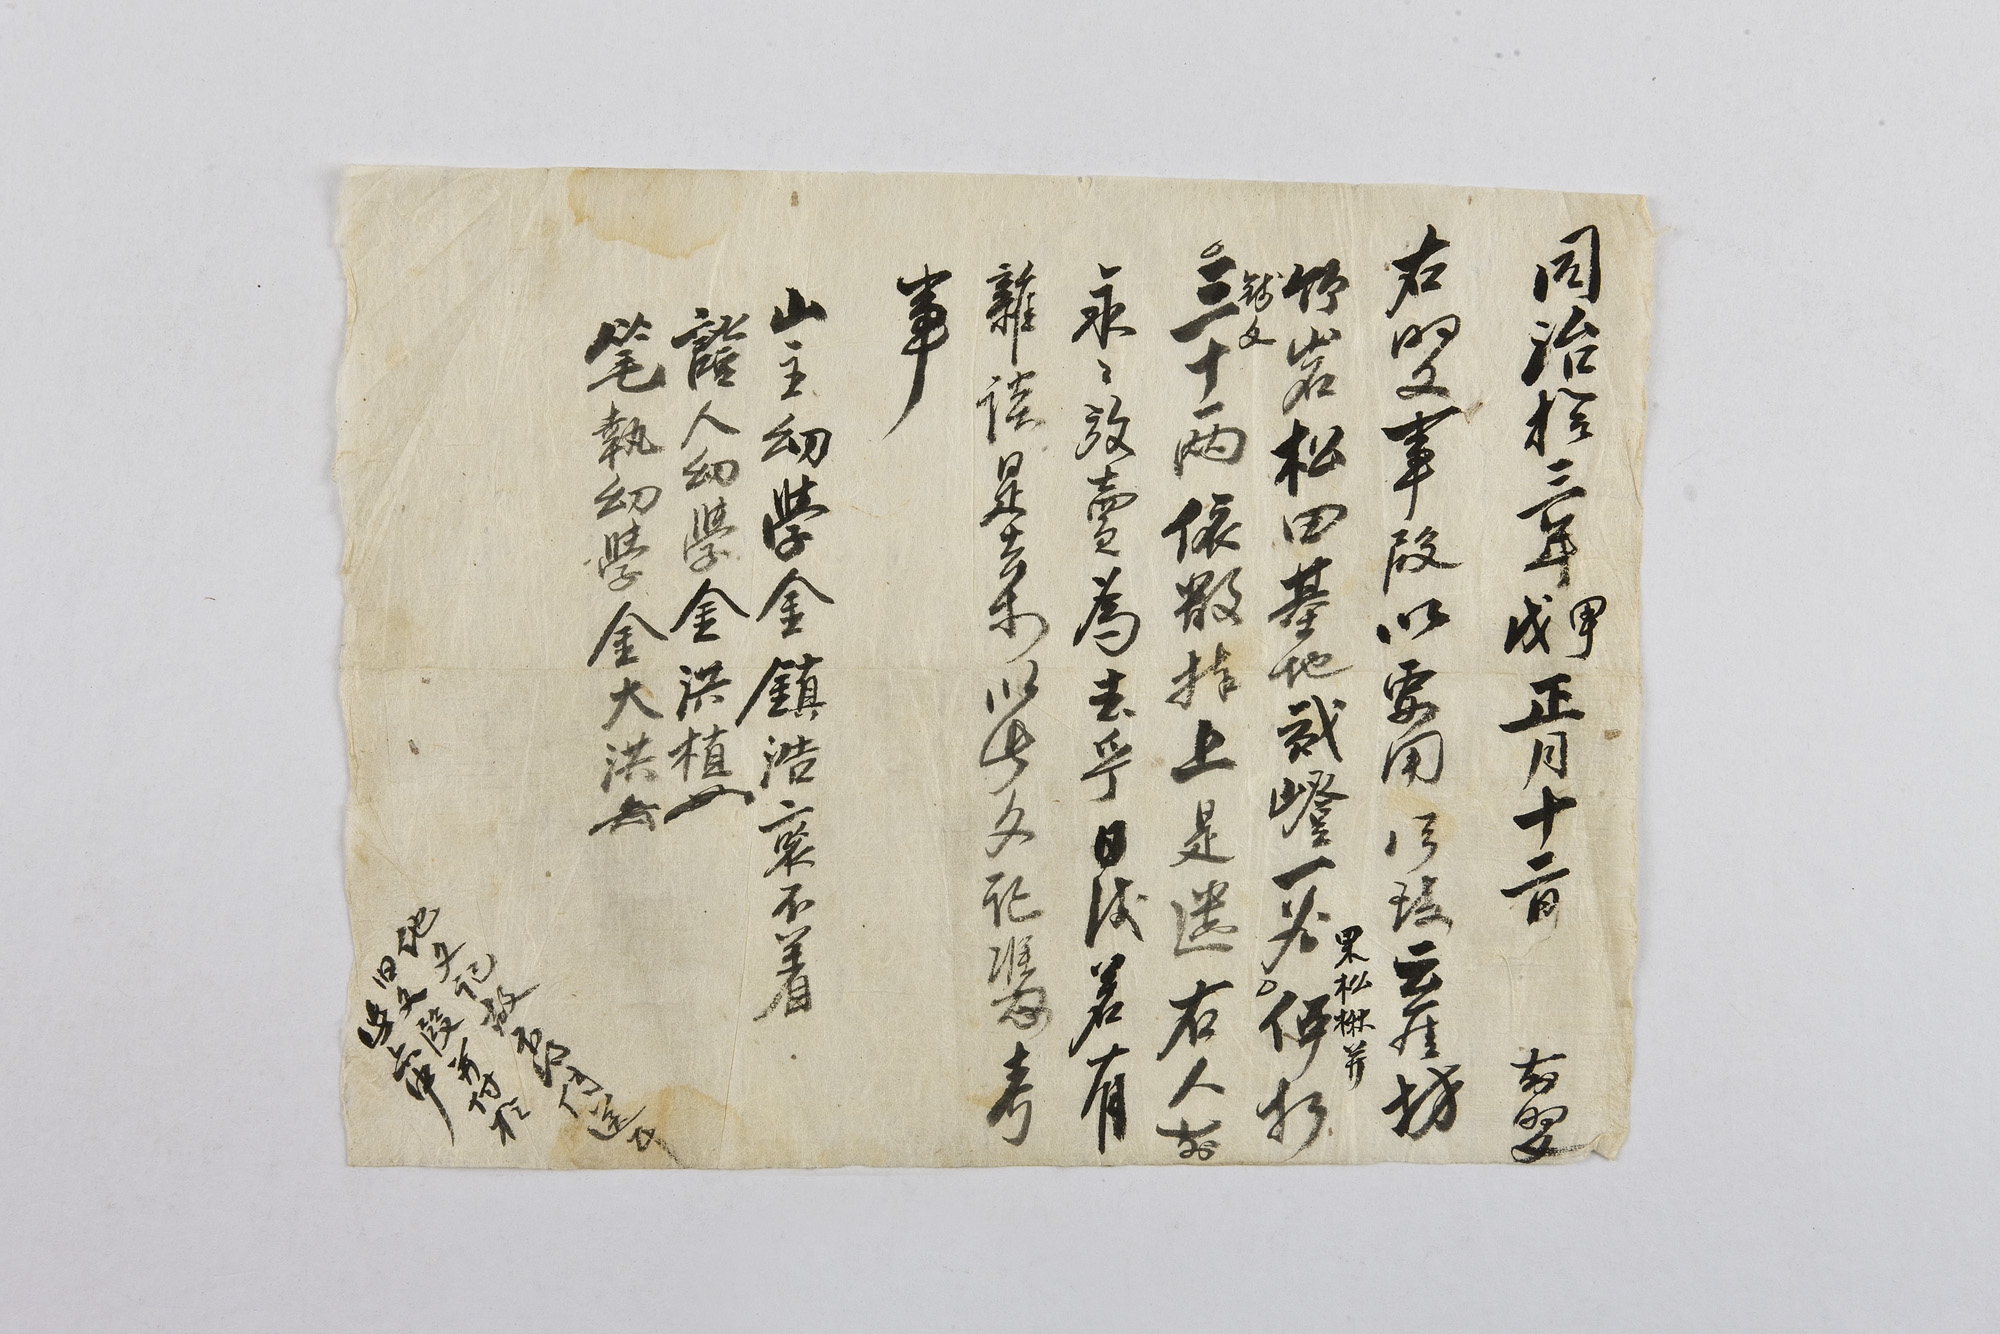 同治拾三年甲戌正月十二日 前明文
右明文事段以要用所致云崔坊
竹岩松田基地貳嶝一㐣果松楸并伴折
錢文三十兩依數捧上是遣右人前
永〻放賣爲去乎日後若有
雜談是去等以此文記憑考
事
山主幼學金鎭浩喪不着
證人幼學金洪植
筆執幼學金大洪